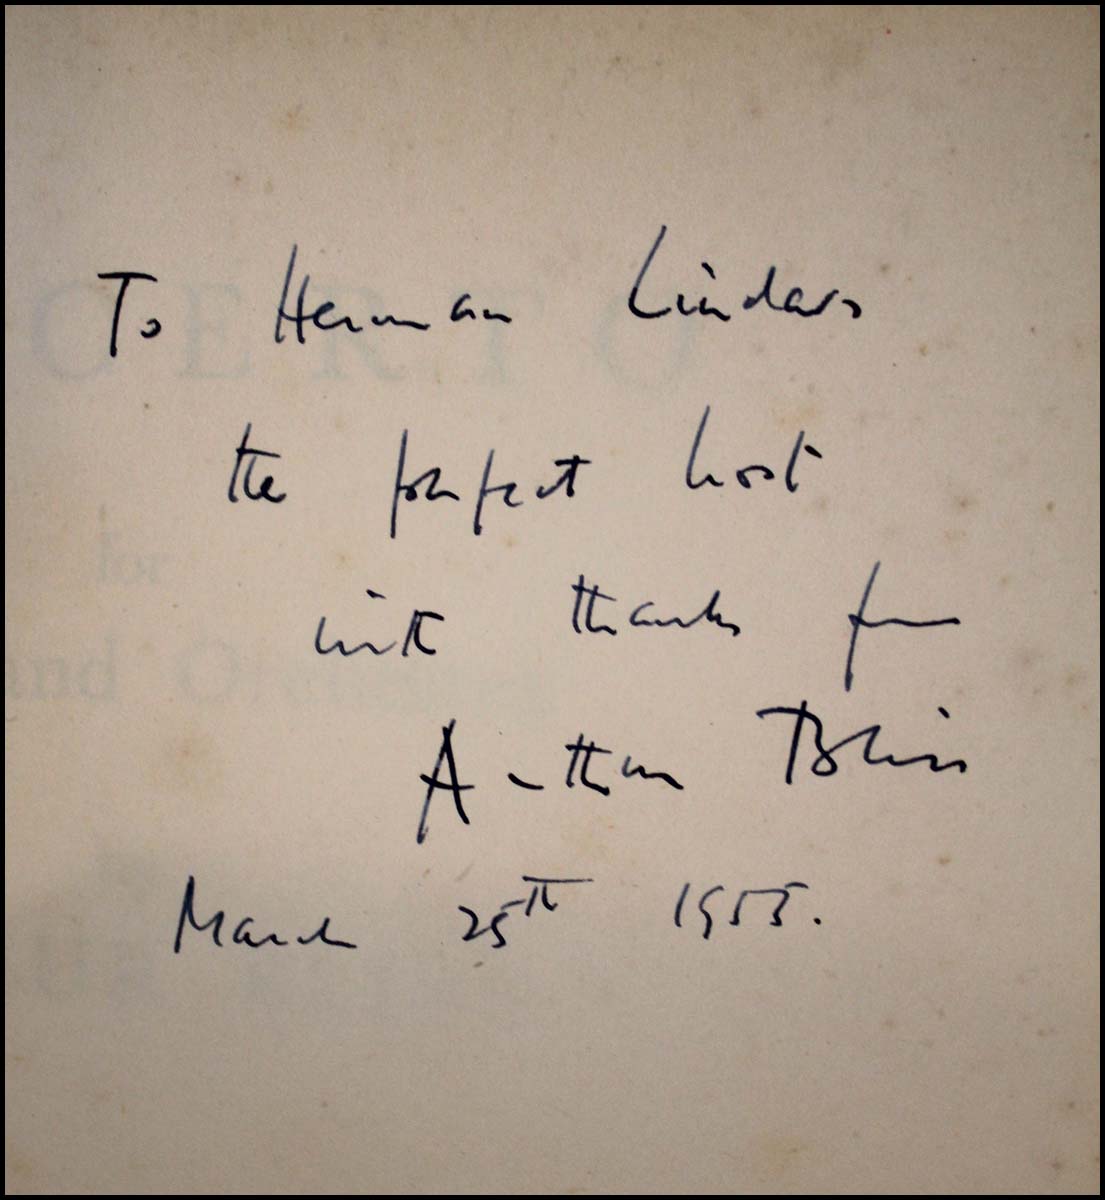 To Herman Lindars
CERTO
the perfect host
for
with thanks from
and Orchestra
Arthur Bliss
March 25th 1955.